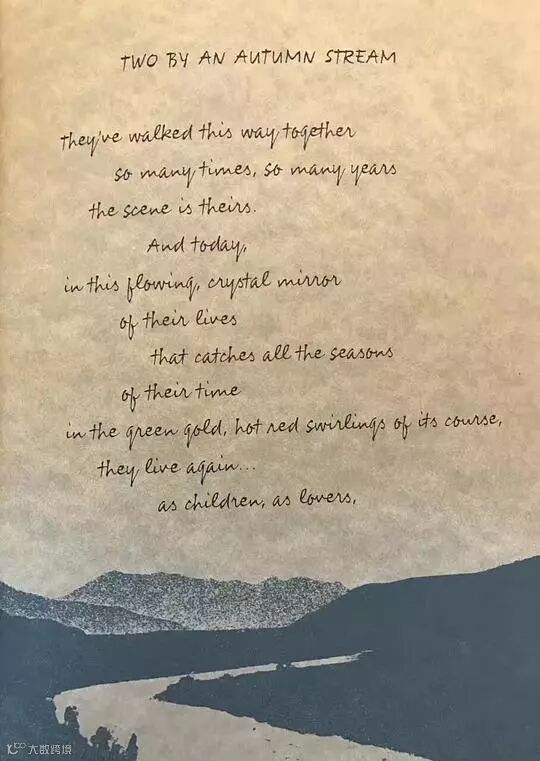 TWO BY AN AUTUMN STREAM
They've walked this way together
so many times, so many years
the scene is theirs.
And today,
in this flowing, crystal mirror
of their lives
that catches all the seasons
of their time
in the green gold, hot red swirlings of its course,
they live again...
as children, as lovers,
大数跨境